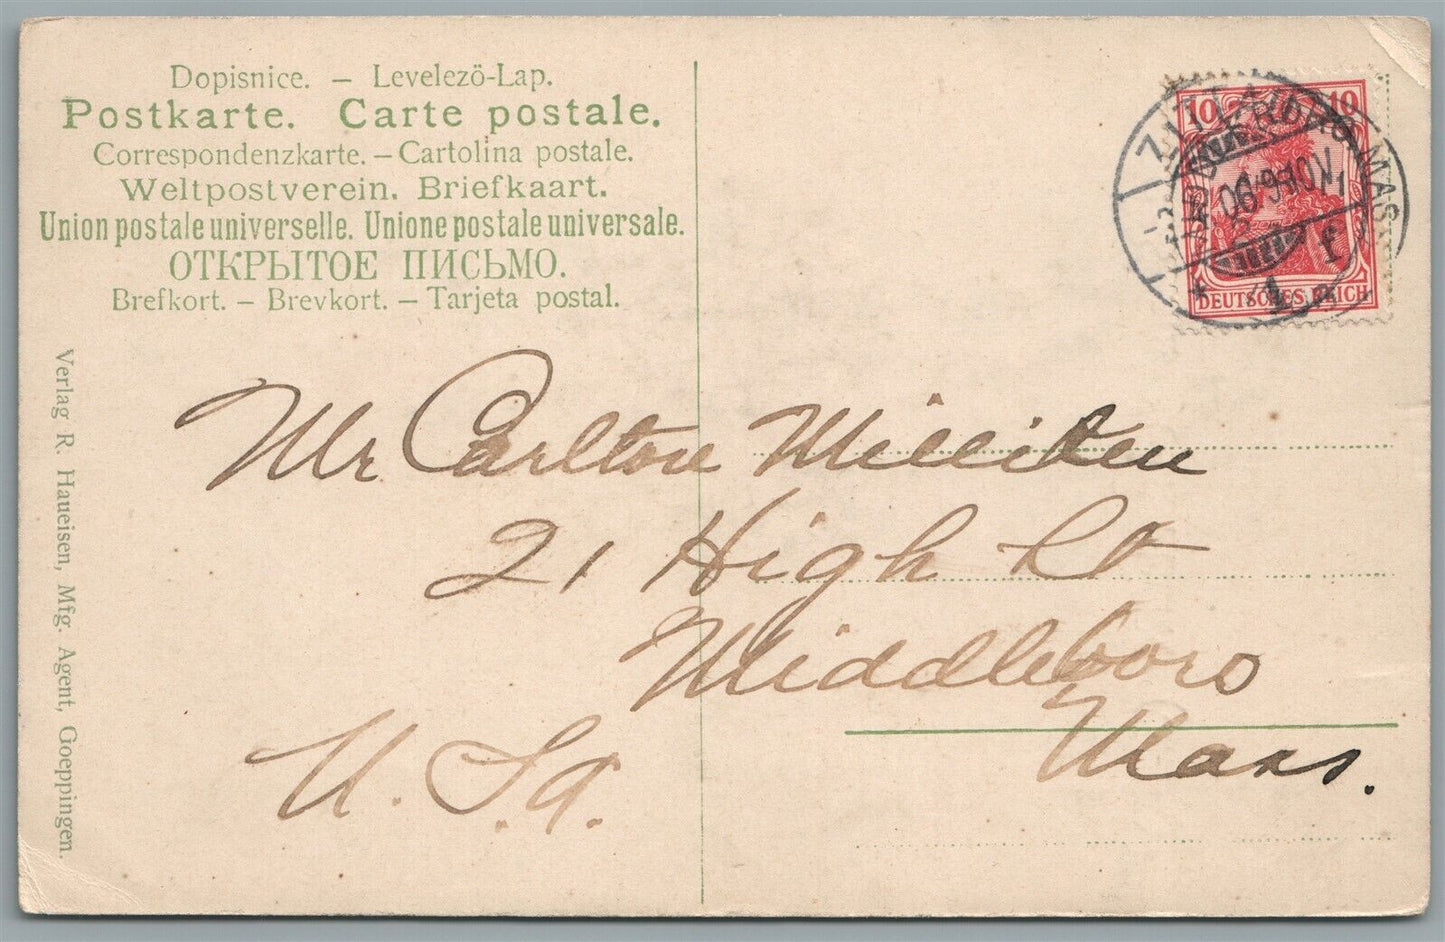 Dopisnice. – Levelezö-Lap.
Postkarte. Carte postale.
Correspondenzkarte. – Cartolina postale.
Weltpostverein. Briefkaart.
Union postale universelle. Unione postale universale.
ОТКРЫТОЕ ПИСЬМО.
Brefkort. – Brevkort. – Tarjeta postal.
Verlag R. Haueisen, Mfg. Agent, Goeppingen.
10 10
DEUTSCHES REICH
Mr Carlton Milliken
21 High St
Middleboro
Mass.
U. S. a.